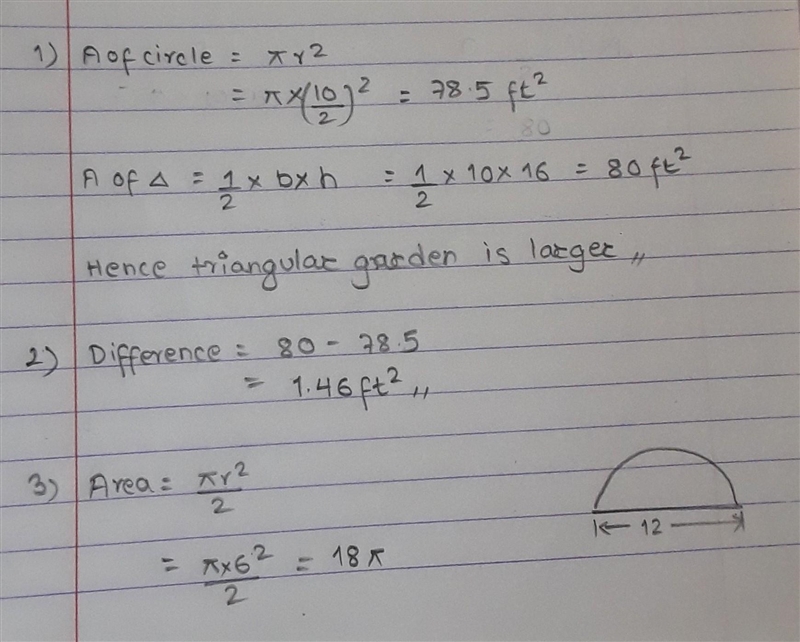 1) A of circle = πr²
= π×(10/2)² = 78.5 ft²
80
A of △ = 1/2 × b×h = 1/2 × 10 × 16 = 80 ft²
Hence triangular garden is larger,,
2) Difference = 80 - 78.5
= 1.46 ft²,,
3) Area = πr²/2
12
= π×6²/2 = 18π